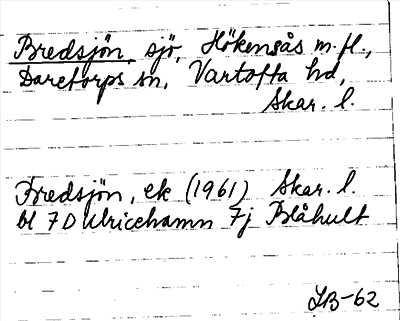 Bredsjön, sjö, Hökensås m.fl.,
Daretorps sn, Vartofta hd,
Skar. l.
Bredsjön, ek (1961) Skar. l.
bl 7D Ulricehamn 7j Blåhult
LB-62